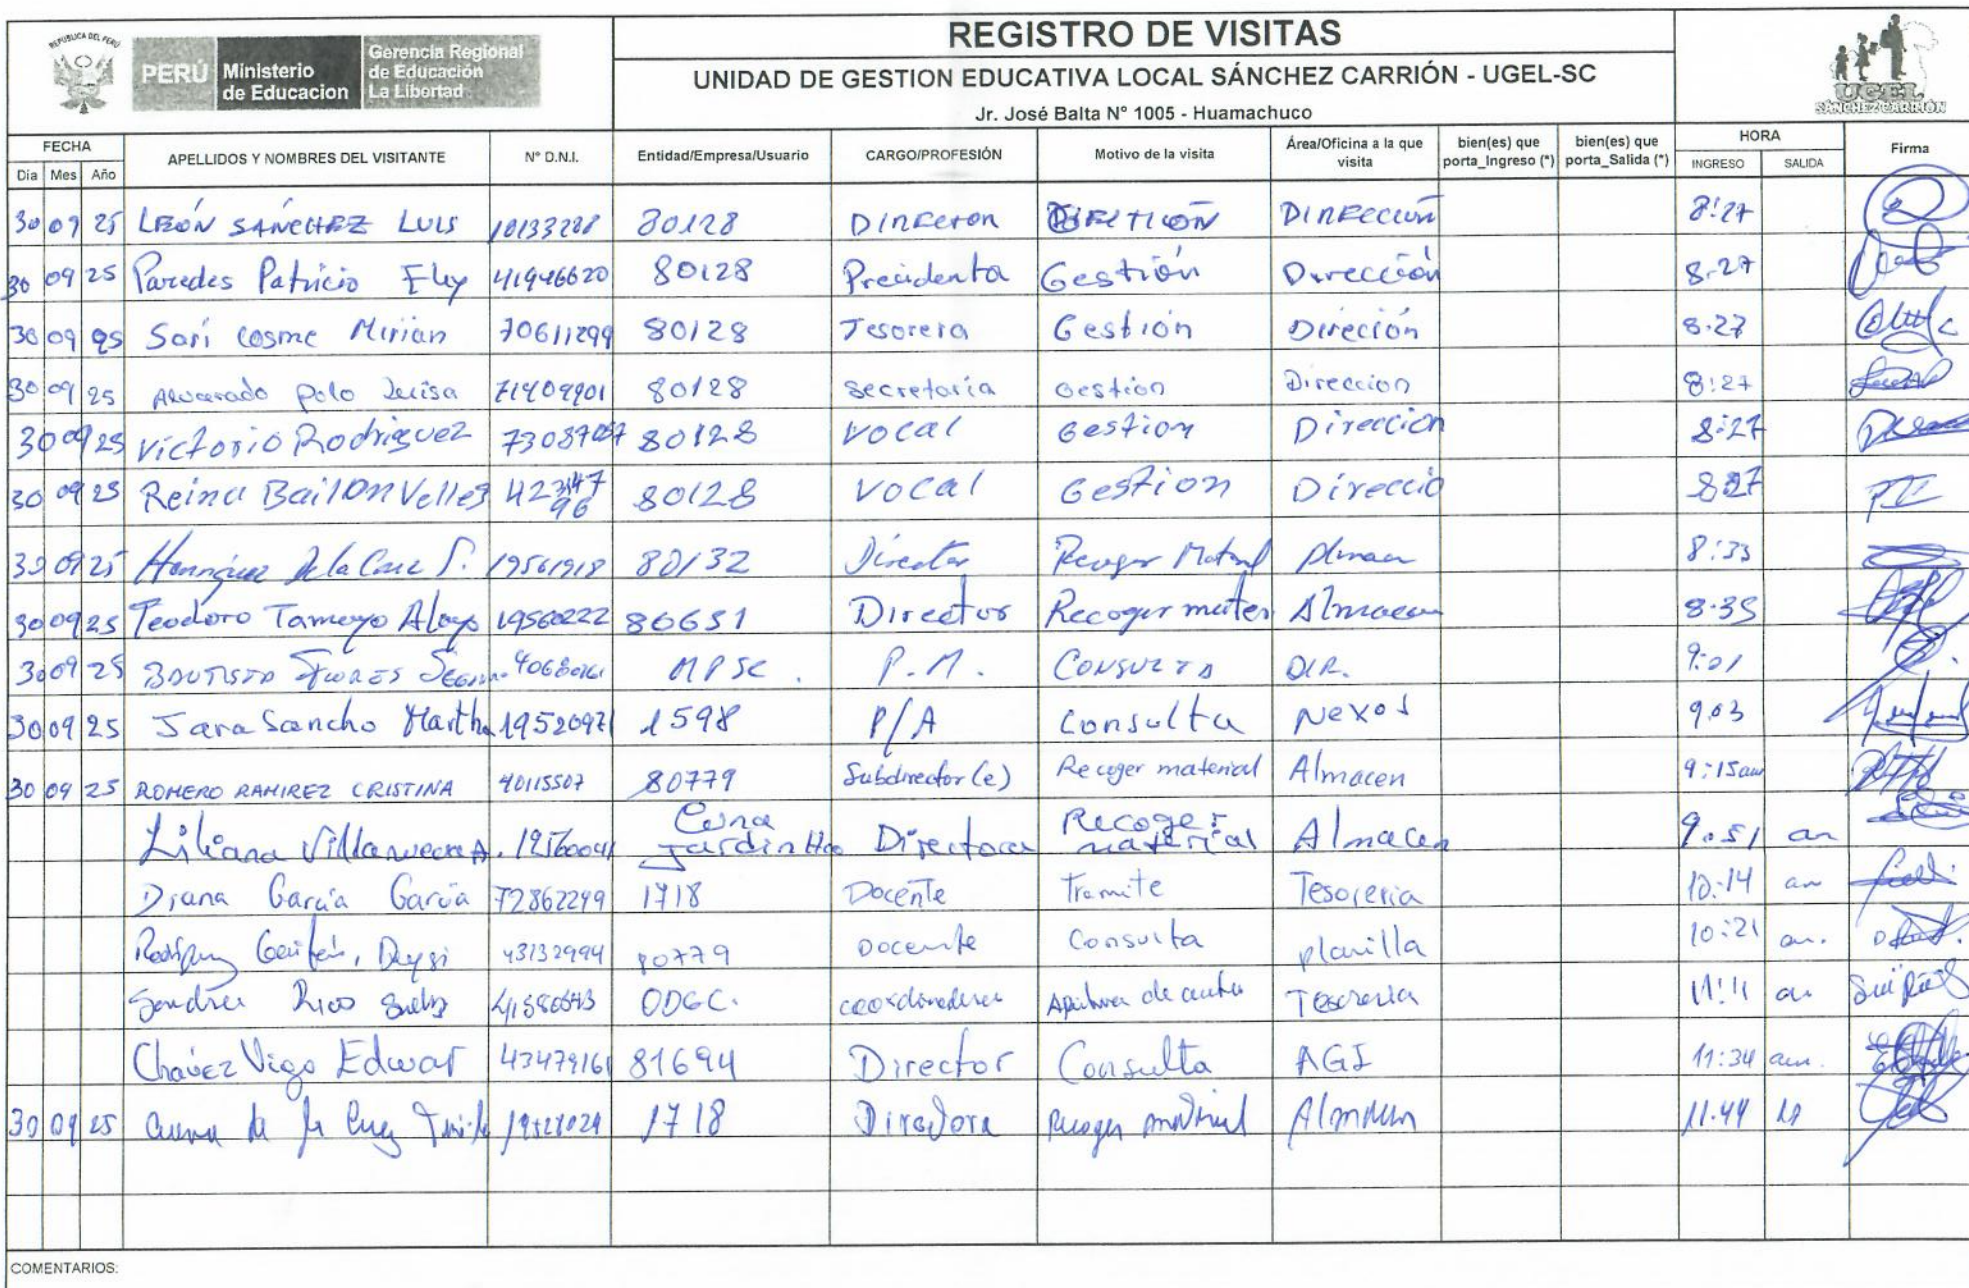 REPUBLICA DEL PERÚ
PERÚ Ministerio de Educacion Gerencia Regional de Educación La Libertad
REGISTRO DE VISITAS
UNIDAD DE GESTION EDUCATIVA LOCAL SÁNCHEZ CARRIÓN - UGEL-SC
Jr. José Balta N° 1005 - Huamachuco
UGEL
SÁNCHEZ CARRIÓN
FECHA APELLIDOS Y NOMBRES DEL VISITANTE N° D.N.I. Entidad/Empresa/Usuario CARGO/PROFESIÓN Motivo de la visita Área/Oficina a la que visita bien(es) que porta_Ingreso (*) bien(es) que porta_Salida (*) HORA Firma
Dia Mes Año INGRESO SALIDA
30 09 25 LEÓN SANCHEZ LUIS 80128 DIRECTOR DIRECCIÓN 8:27
30 09 25 Paredes Patricio Ely 41946620 80128 Presidenta Gestión Dirección 8:27
30 09 25 Sari Cosme Mirian 70611299 80128 Tesorera Gestión Direción 8:27
30 09 25 Alvarado Polo Luisa 71409901 80128 Secretaria Gestion Direccion 8:27
30 09 25 Victorio Rodriguez 80128 Vocal Gestion Direccion 8:27
30 09 25 Reina Bailon Velles 80128 Vocal Gestion Direccio 8:27
30 09 25 De la Cruz 19561918 80132 Director Recoger Almacen 8:33
30 09 25 Teodoro Tamayo 19560222 80651 Director Recoger mater Almacen 8:35
30 09 25 BAUTISTA FLORES MPSC P.M. CONSULTA DIR. 9:01
30 09 25 Jara Sancho Martha 19520971 1598 P/A Consulta Nexos 9:03
30 09 25 ROMERO RAMIREZ CRISTINA 40115507 80779 Subdirector (e) Recoger material Almacen 9:15am
Liliana Villanueva A. Cuna Jardin Hco Directora Recoger material Almacen 9:51 am
Diana García García 72862299 1718 Docente Tramite Tesoreria 10:14 am
43132994 80779 Docente Consulta planilla 10:21 am.
Rios ODGC. coordinadora de Tesoreria 11:11 am
Chávez Vigo Edwar 43479161 81694 Director Consulta AGI 11:34 am.
30 09 25 de la Cruz 1718 Directora Recoger material Almacen 11:44
COMENTARIOS: